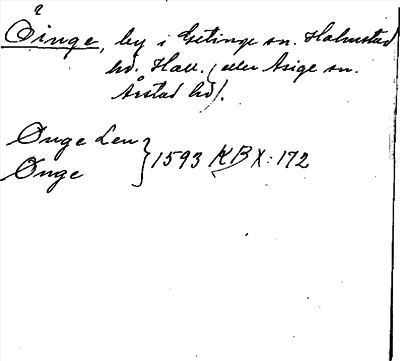 ?
Öinge, by i Getinge sn. Halmstad
hd. Hall. (eller Asige sn.
Årstad hd).
Önge Len
Önge } 1593 KB X: 172